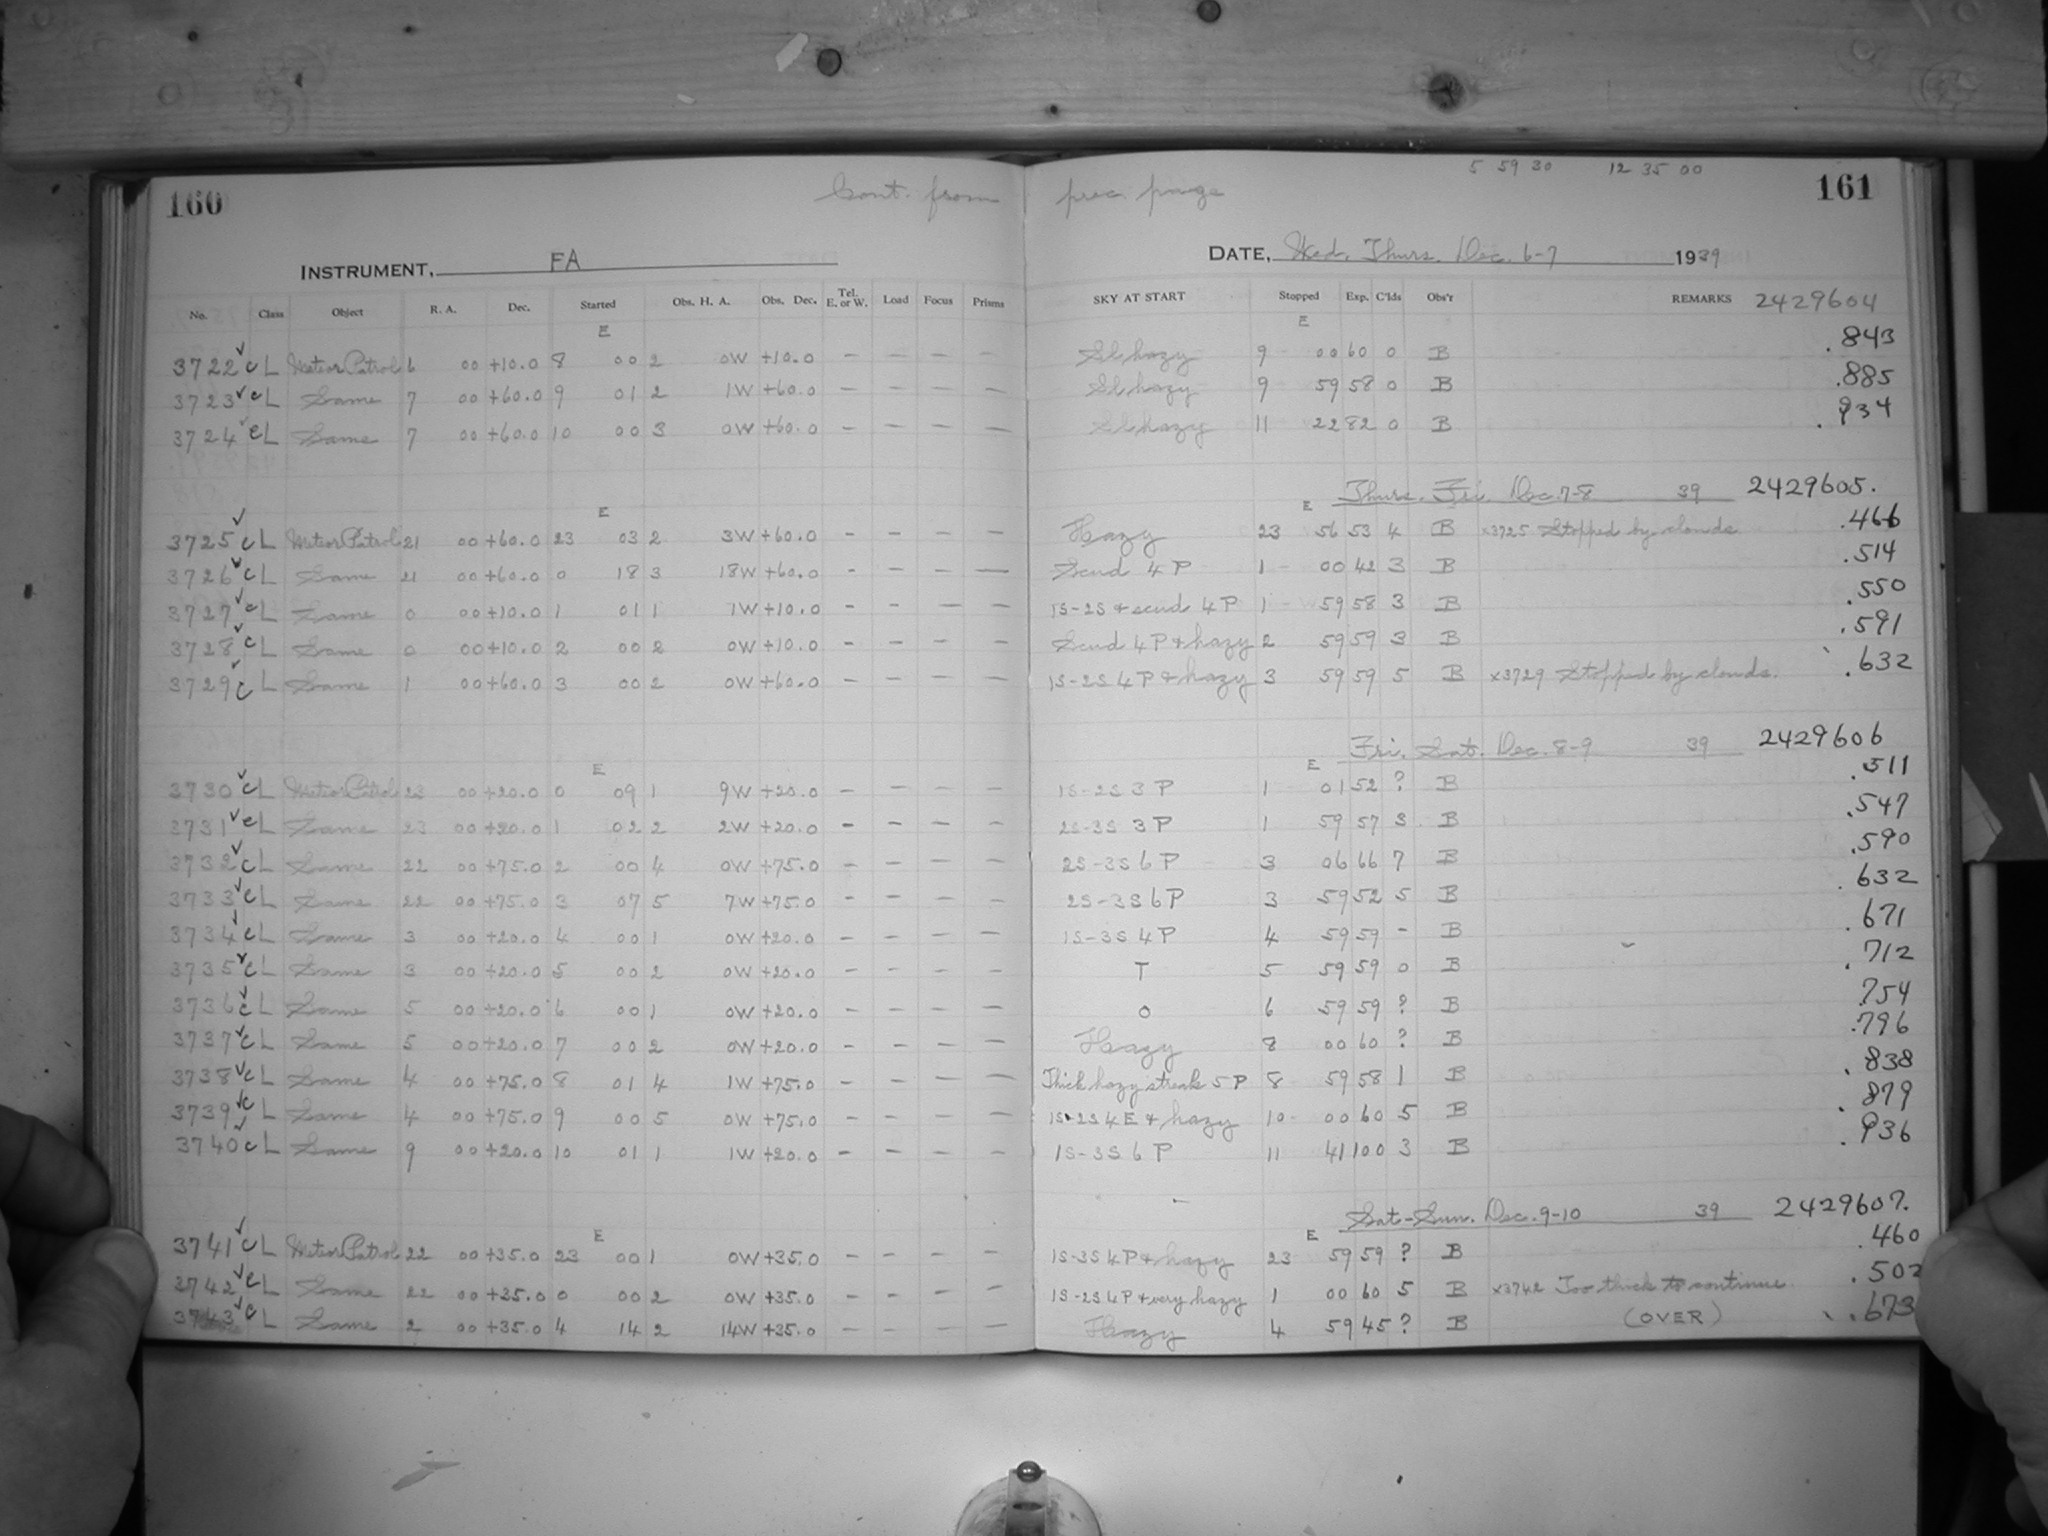 5 59 30 12 35 00
160 Cont. from prec. page 161
INSTRUMENT, FA DATE, Wed. Thurs. Dec. 6-7 1939
No. Class Object R. A. Dec. Started Obs. H. A. Obs. Dec. Tel. E. or W. Load Focus Prisms SKY AT START Stopped Exp. C'lds Obs'r REMARKS 2429604
E E
3722 ✓ c L Meteor Patrol 6 00 +10.0 8 00 2 0W +10.0 - - - - Sl hazy 9 00 60 0 B .843
3723 ✓ c L Same 7 00 +60.0 9 01 2 1W +60.0 - - - - Sl hazy 9 59 58 0 B .885
3724 ✓ c L Same 7 00 +60.0 10 00 3 0W +60.0 - - - - Sl hazy 11 22 82 0 B .934
Thurs. Fri. Dec. 7-8 39 2429605.
E E
3725 ✓ c L Meteor Patrol 21 00 +60.0 23 03 2 3W +60.0 - - - - Hazy 23 56 53 4 B x3725 Stopped by clouds .466
3726 ✓ c L Same 21 00 +60.0 0 18 3 18W +60.0 - - - - Scud 4 P 1 00 42 3 B .514
3727 ✓ c L Same 0 00 +10.0 1 01 1 1W +10.0 - - - - 1S-2S & scud 4 P 1 59 58 3 B .550
3728 ✓ c L Same 0 00 +10.0 2 00 2 0W +10.0 - - - - Scud 4 P & hazy 2 59 59 3 B .591
3729 ✓ c L Same 1 00 +60.0 3 00 2 0W +60.0 - - - - 1S-2S 4 P & hazy 3 59 59 5 B x3729 Stopped by clouds. .632
Fri. Sat. Dec. 8-9 39 2429606
E E
3730 ✓ c L Meteor Patrol 23 00 +20.0 0 09 1 9W +20.0 - - - - 1S-2S 3 P 1 01 52 ? B .511
3731 ✓ c L Same 23 00 +20.0 1 02 2 2W +20.0 - - - - 2S-3S 3 P 1 59 57 3 B .547
3732 ✓ c L Same 22 00 +75.0 2 00 4 0W +75.0 - - - - 2S-3S 6 P 3 06 66 7 B .590
3733 ✓ c L Same 22 00 +75.0 3 07 5 7W +75.0 - - - - 2S-3S 6 P 3 59 52 5 B .632
3734 ✓ c L Same 3 00 +20.0 4 00 1 0W +20.0 - - - - 1S-3S 4 P 4 59 59 - B .671
3735 ✓ c L Same 3 00 +20.0 5 00 2 0W +20.0 - - - - T 5 59 59 0 B .712
3736 ✓ c L Same 5 00 +20.0 6 00 1 0W +20.0 - - - - O 6 59 59 ? B .754
3737 ✓ c L Same 5 00 +20.0 7 00 2 0W +20.0 - - - - Hazy 8 00 60 ? B .796
3738 ✓ c L Same 4 00 +75.0 8 01 4 1W +75.0 - - - - Thick hazy streak 5 P 8 59 58 1 B .838
3739 ✓ c L Same 4 00 +75.0 9 00 5 0W +75.0 - - - - 1S-2S 4 E & hazy 10 00 60 5 B .879
3740 ✓ c L Same 9 00 +20.0 10 01 1 1W +20.0 - - - - 1S-3S 6 P 11 41 100 3 B .936
Sat-Sun. Dec. 9-10 39 2429607.
E E
3741 ✓ c L Meteor Patrol 22 00 +35.0 23 00 1 0W +35.0 - - - - 1S-3S 4 P & hazy 23 59 59 ? B .460
3742 ✓ c L Same 22 00 +35.0 0 00 2 0W +35.0 - - - - 1S-2S 4 P & very hazy 1 00 60 5 B x3742 Too thick to continue. .502
3743 ✓ c L Same 2 00 +35.0 4 14 2 14W +35.0 - - - - Hazy 4 59 45 ? B (OVER) .673